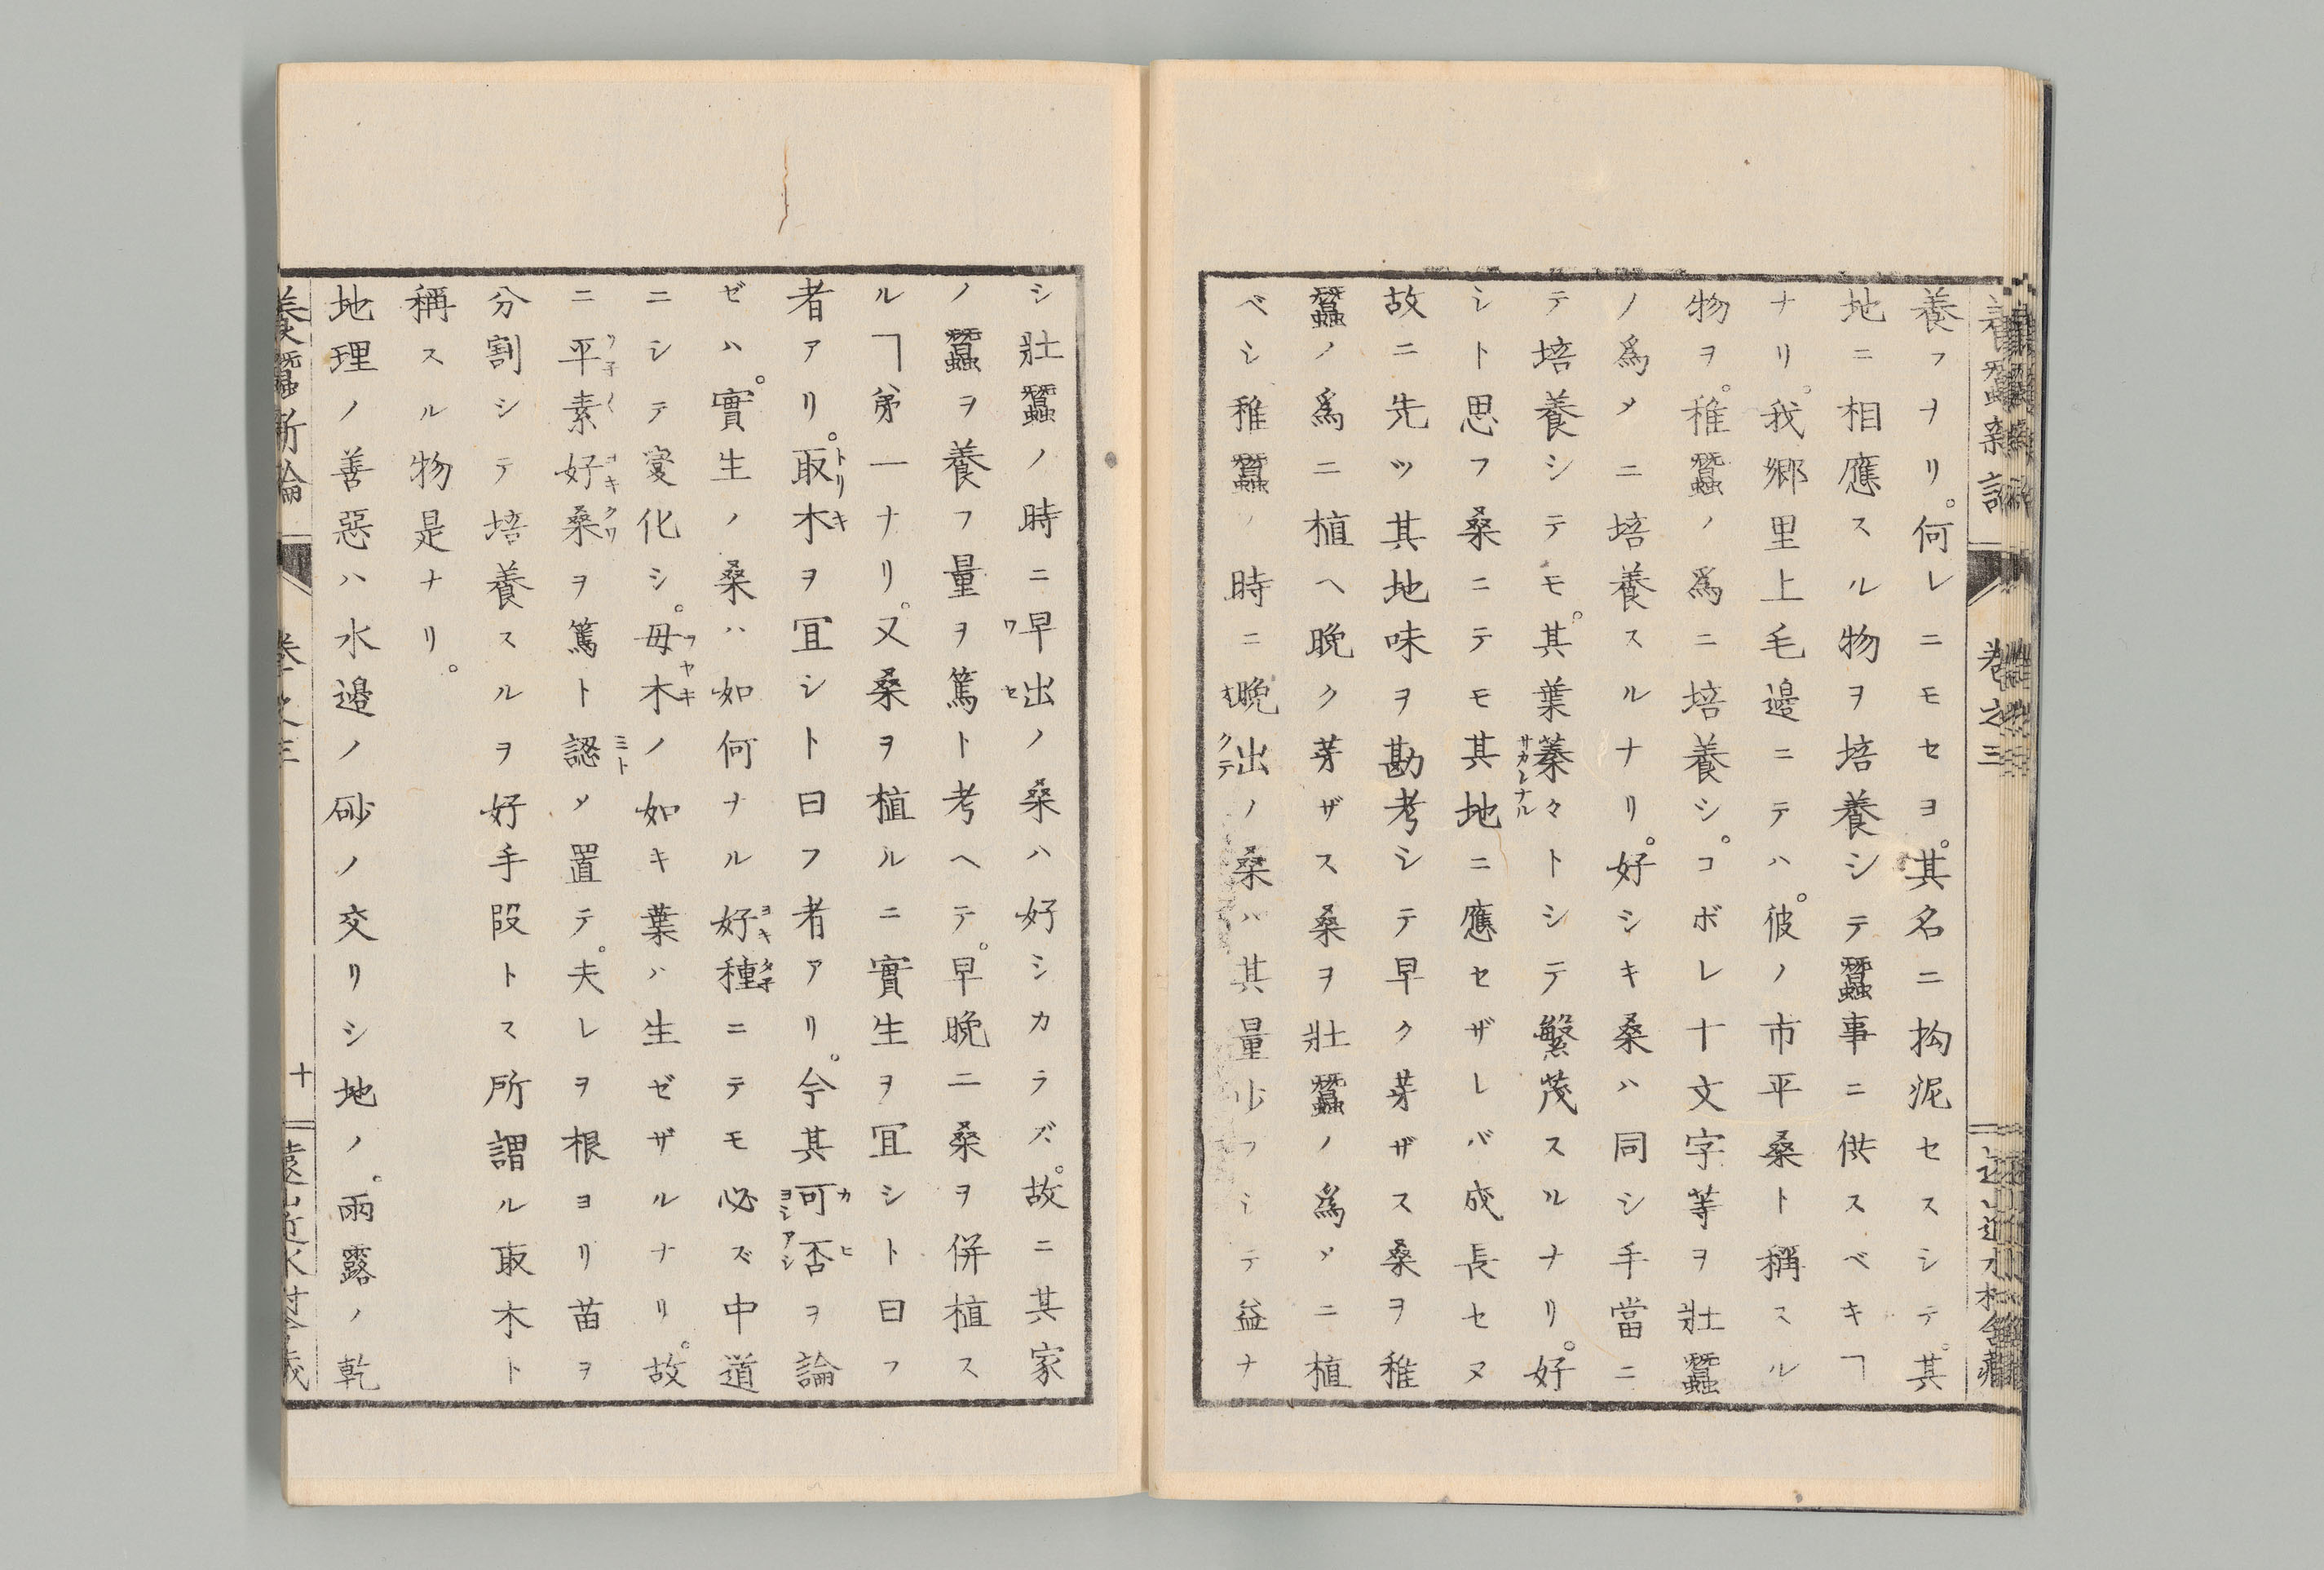 養フヲリ。何レニモセヨ。其名ニ抅泥セスシテ。其
地ニ相應スル物ヲ培養シテ蠶事ニ供スベキヿ
ナリ。我郷里上毛邉ニテハ。彼ノ市平桑ト稱スル
物ヲ。稚蠶ノ爲ニ培養シ。コボレ十文字等ヲ壯蠶
ノ爲メニ培養スルナリ。好シキ桑ハ同シ手當ニ
テ培養シテモ。其葉蓁々トシテ繁茂スルナリ。好
シト思フ桑ニテモ其地ニ應セザレバ成長セヌ
故ニ先ツ其地味ヲ勘考シテ早ク芽ザス桑ヲ稚
蠶ノ爲ニ植ヘ晩ク芽ザス桑ヲ壯蠶ノ爲メニ植
ベシ稚蠶ノ時ニ晩出ノ桑ハ其量少フシテ益ナ
シ壯蠶ノ時ニ早出ノ桑ハ好シカラズ。故ニ其家
ノ蠶ヲ養フ量ヲ篤ト考ヘテ。早晩二桑ヲ併植ス
ルヿ第一ナリ。又桑ヲ植ルニ實生ヲ冝シト曰フ
者アリ。取木ヲ冝シト曰フ者アリ。今其可否ヲ論
ゼハ。實生ノ桑ハ如何ナル好種ニテモ必ズ中道
ニシテ変化シ。母木ノ如キ葉ハ生ゼザルナリ。故
ニ平素好桑ヲ篤ト認メ置テ。夫レヲ根ヨリ苗ヲ
分割シテ培養スルヲ好手段トス所謂ル取木ト
稱スル物是ナリ。
地理ノ善惡ハ水邉ノ砂ノ交リシ地ノ。雨露ノ乾
養蠶新論 卷之三 十